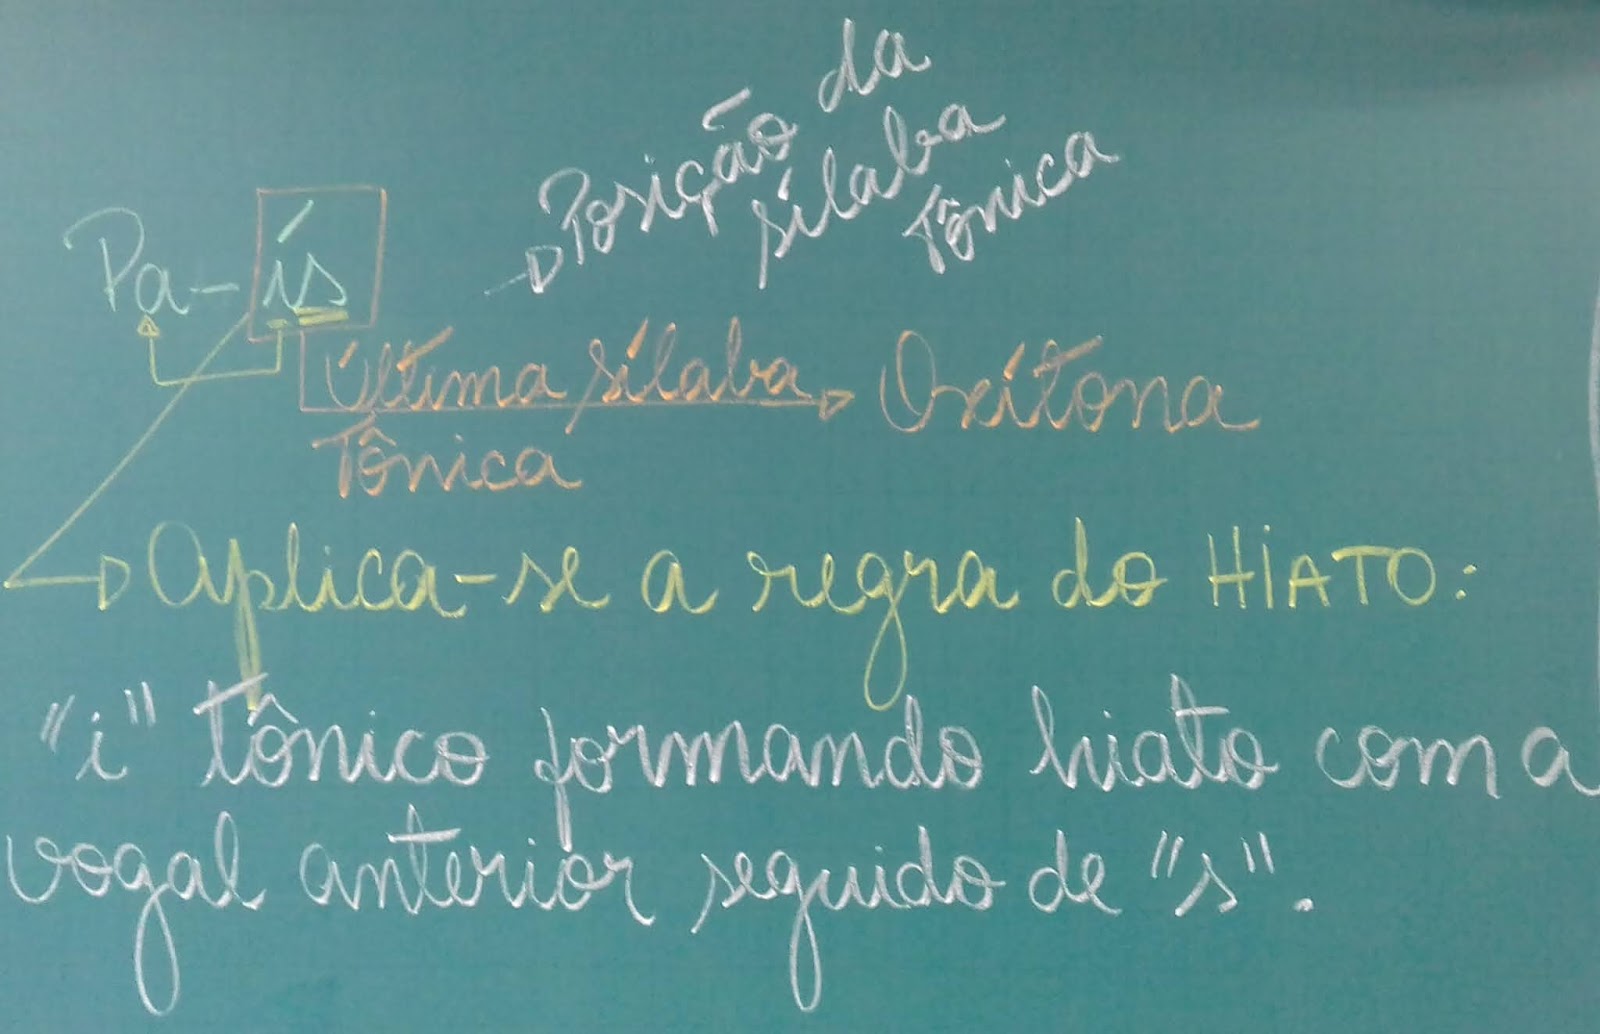 Posição da
sílaba
Tônica
Pa-ís
Última sílaba Oxítona
Tônica
Aplica-se a regra do HIATO:
"i" tônico formando hiato com a
vogal anterior seguido de "s".